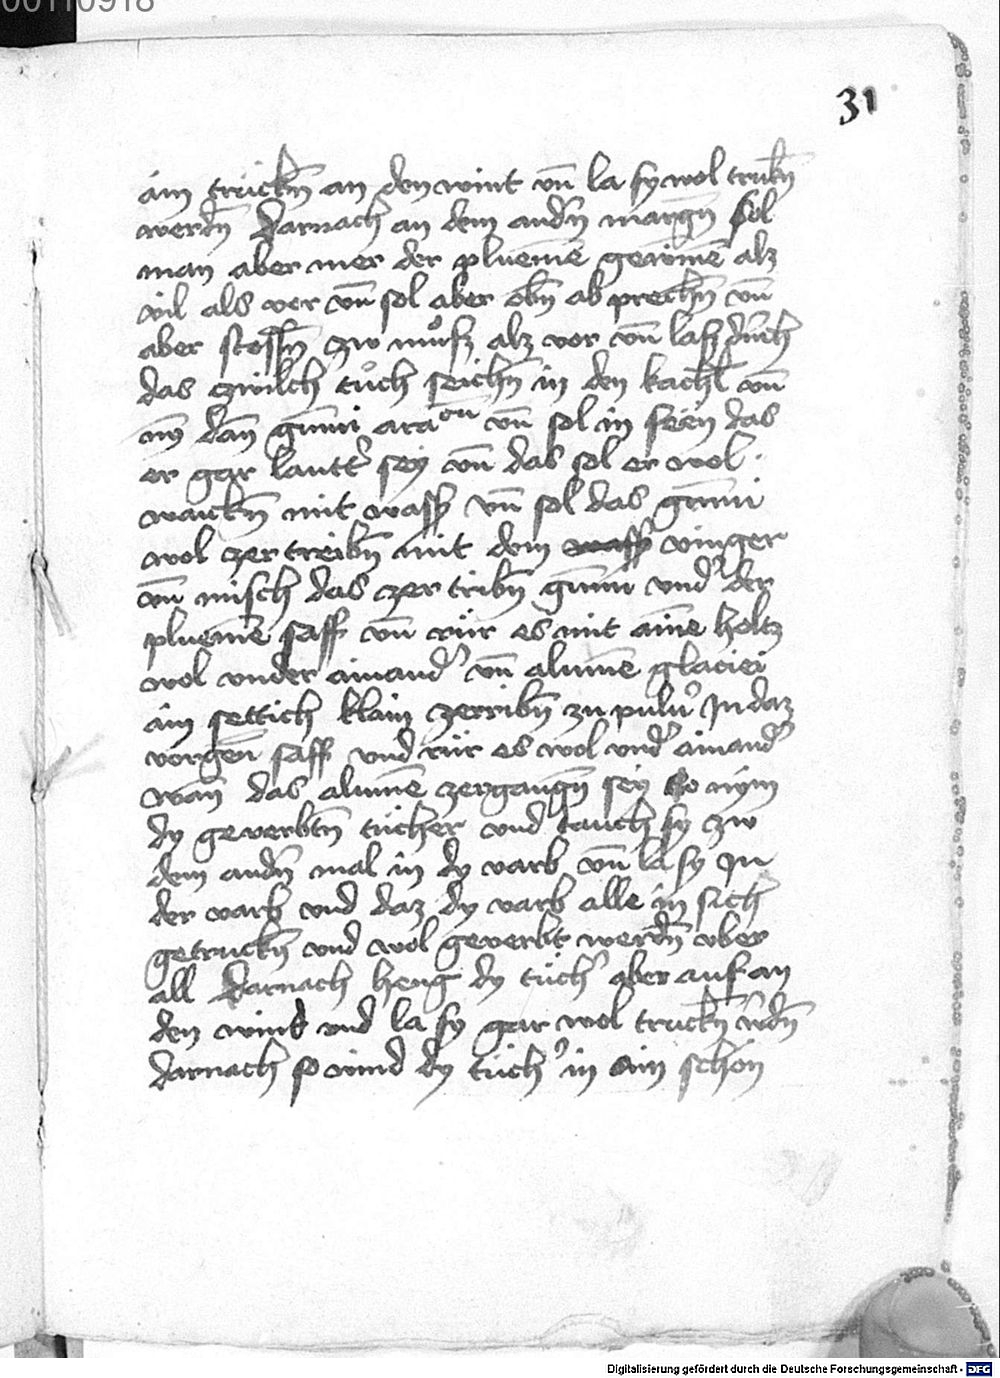 00110918
31
am trückn̄ an den wint vn̄ la sy wol trukn̄
werdn̄ Darnach an dem andn̄ margn̄ sol
man aber mer der pluemē gewinē alz
vil als vor vn̄ sol aber obn̄ ab prechn̄ vn̄
aber stossn̄ zw muͦsz alz vor vn̄ lasz durch
das zwilch tuͦch seichn̄ in den kachl vn̄
nӯ dan̄ gum̄i ara͏ͨͦͫ vn̄ sol in seēn das
er gar lautt̉ sey vn̄ das sol er wol
waickn̄ mit wass̉ vn̄ sol das gum̄i
wol zertreibn̄ mit dem vinger
vn̄ misch das zer tribn̄ gum̄i vnd̉ der
pluemē saff vn̄ rür es mit ainē holtz
wol vnder ainand̉ vn̄ alumē glaciei
ain settich klain zerribn̄ zu pulủ In daz
vorgen̄ saff vnd rür es wol vnd̉ ainand̉
wan̄ das alumē zergangn̄ sey So nym
dy geverbtn̄ tücher vnd tauch sy zw
dem andn̄ mal in dy varb vn̄ la sy In
der varb vnd daz dy varb alle in sich
getruckn̄ vnd wol geverbt werdn̄ vber
all Darnach heng dy tüch̉ aber auf an
den wind vnd la sy gar wol truckn̄ w̉dn̄
darnach so wind dy tüch̉ in ain schön
Digitalisierung gefördert durch die Deutsche Forschungsgemeinschaft - DFG